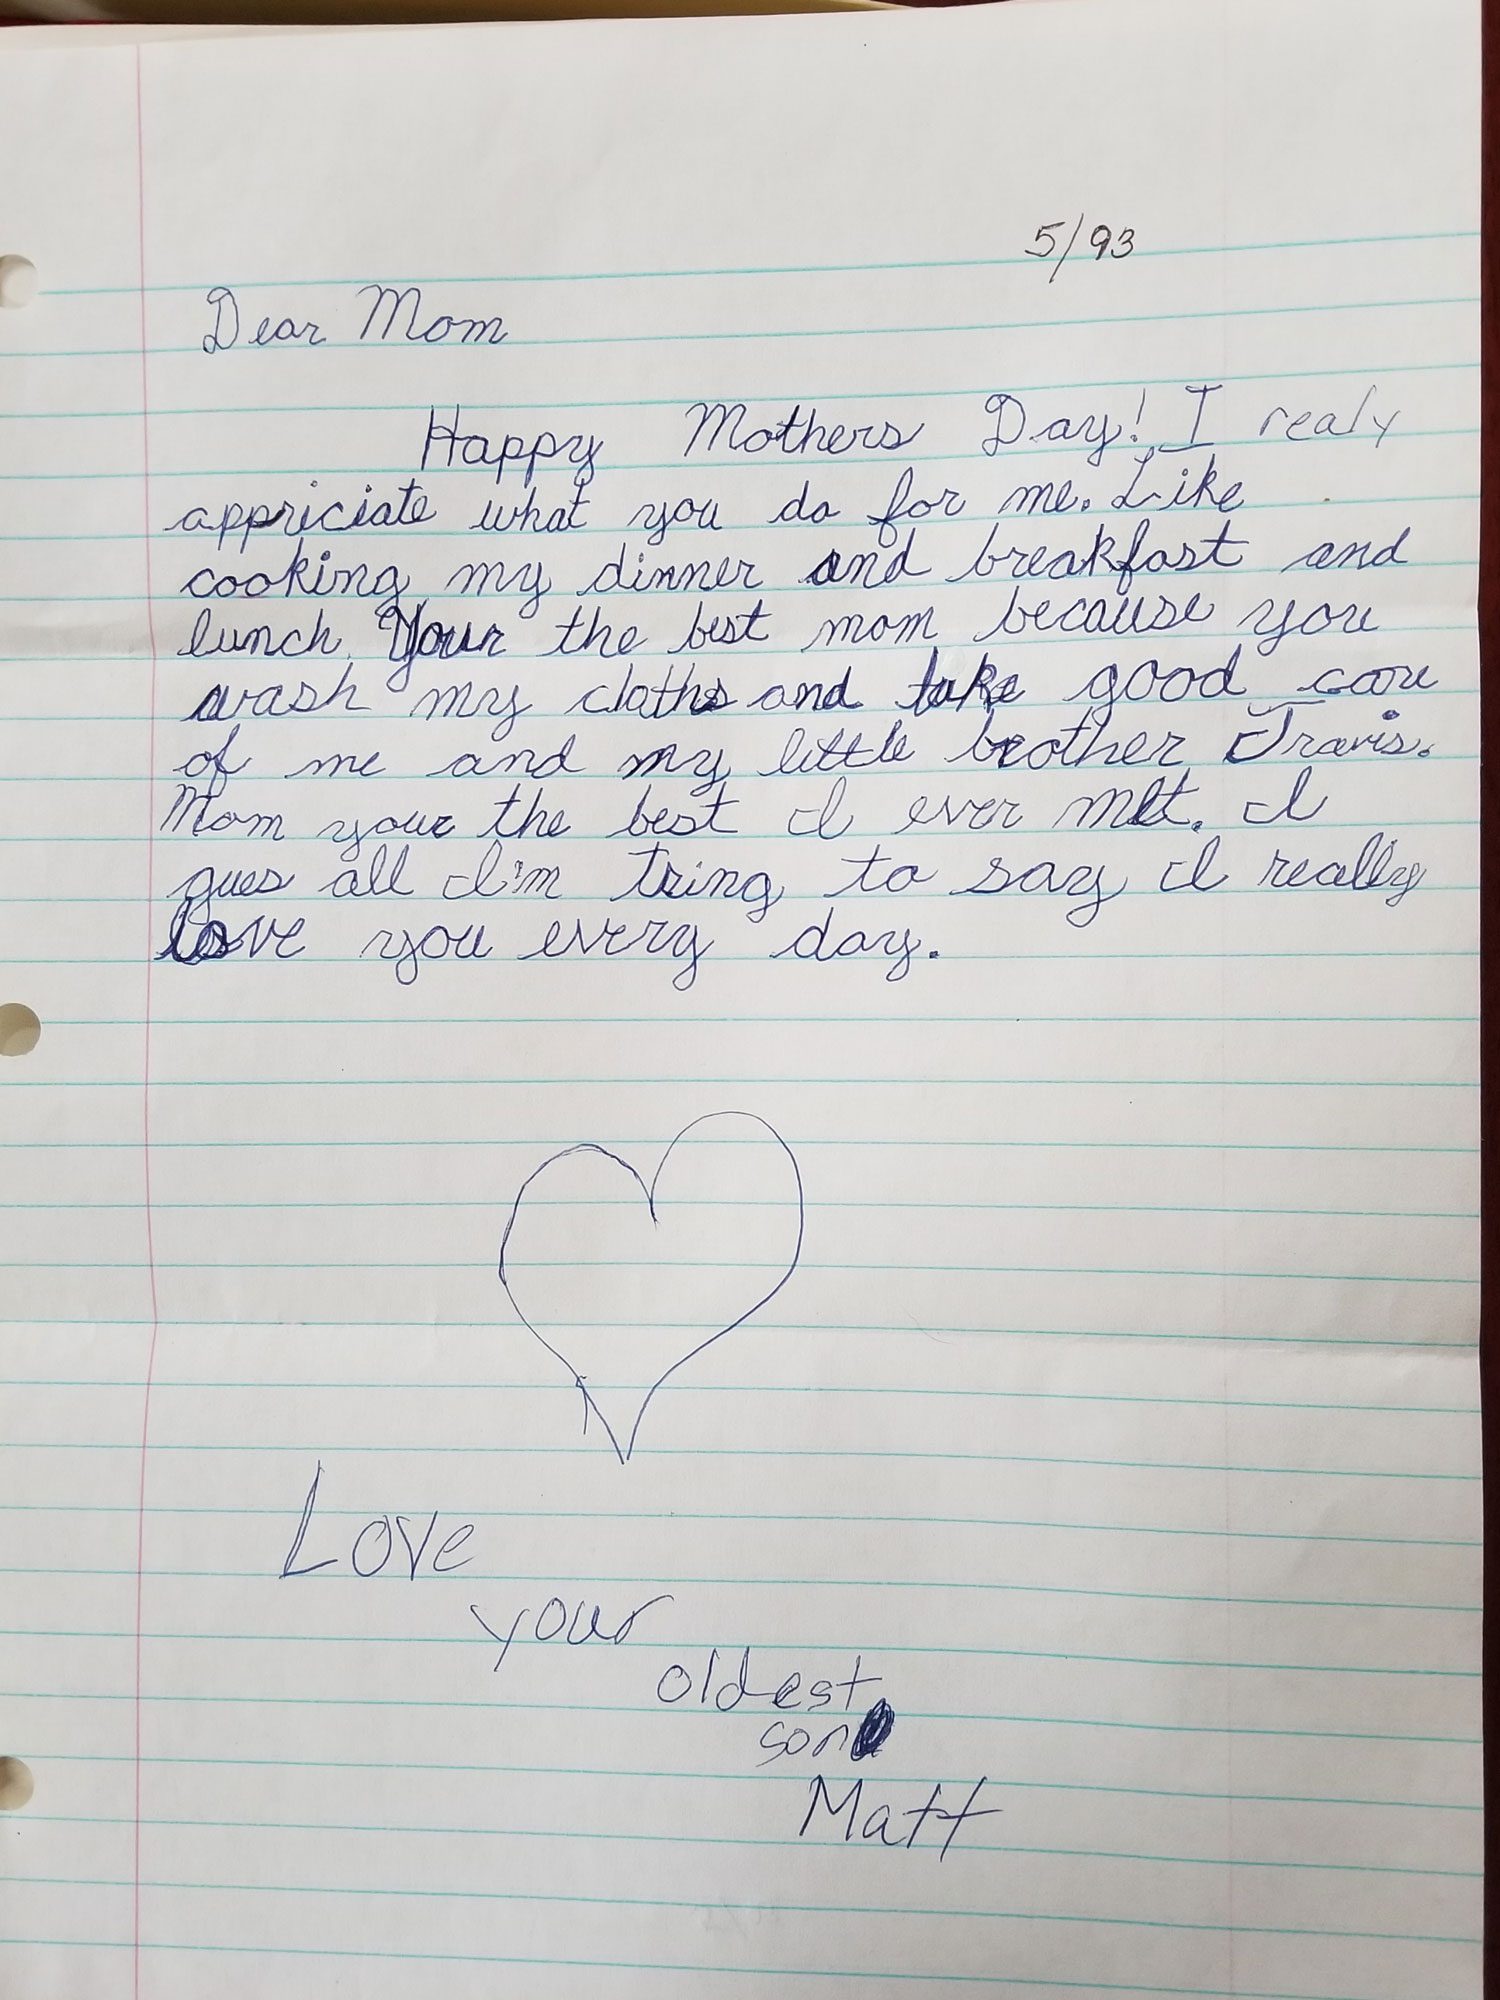 5/93
Dear Mom
Happy Mothers Day! I realy
appriciate what you do for me. Like
cooking my dinner and breakfast and
lunch. Your the best mom because you
wash my cloths and take good care
of me and my little brother Travis.
Mom your the best I ever met. I
gues all I'm tring to say I really
love you every day.
Love
your
oldest
son
Matt